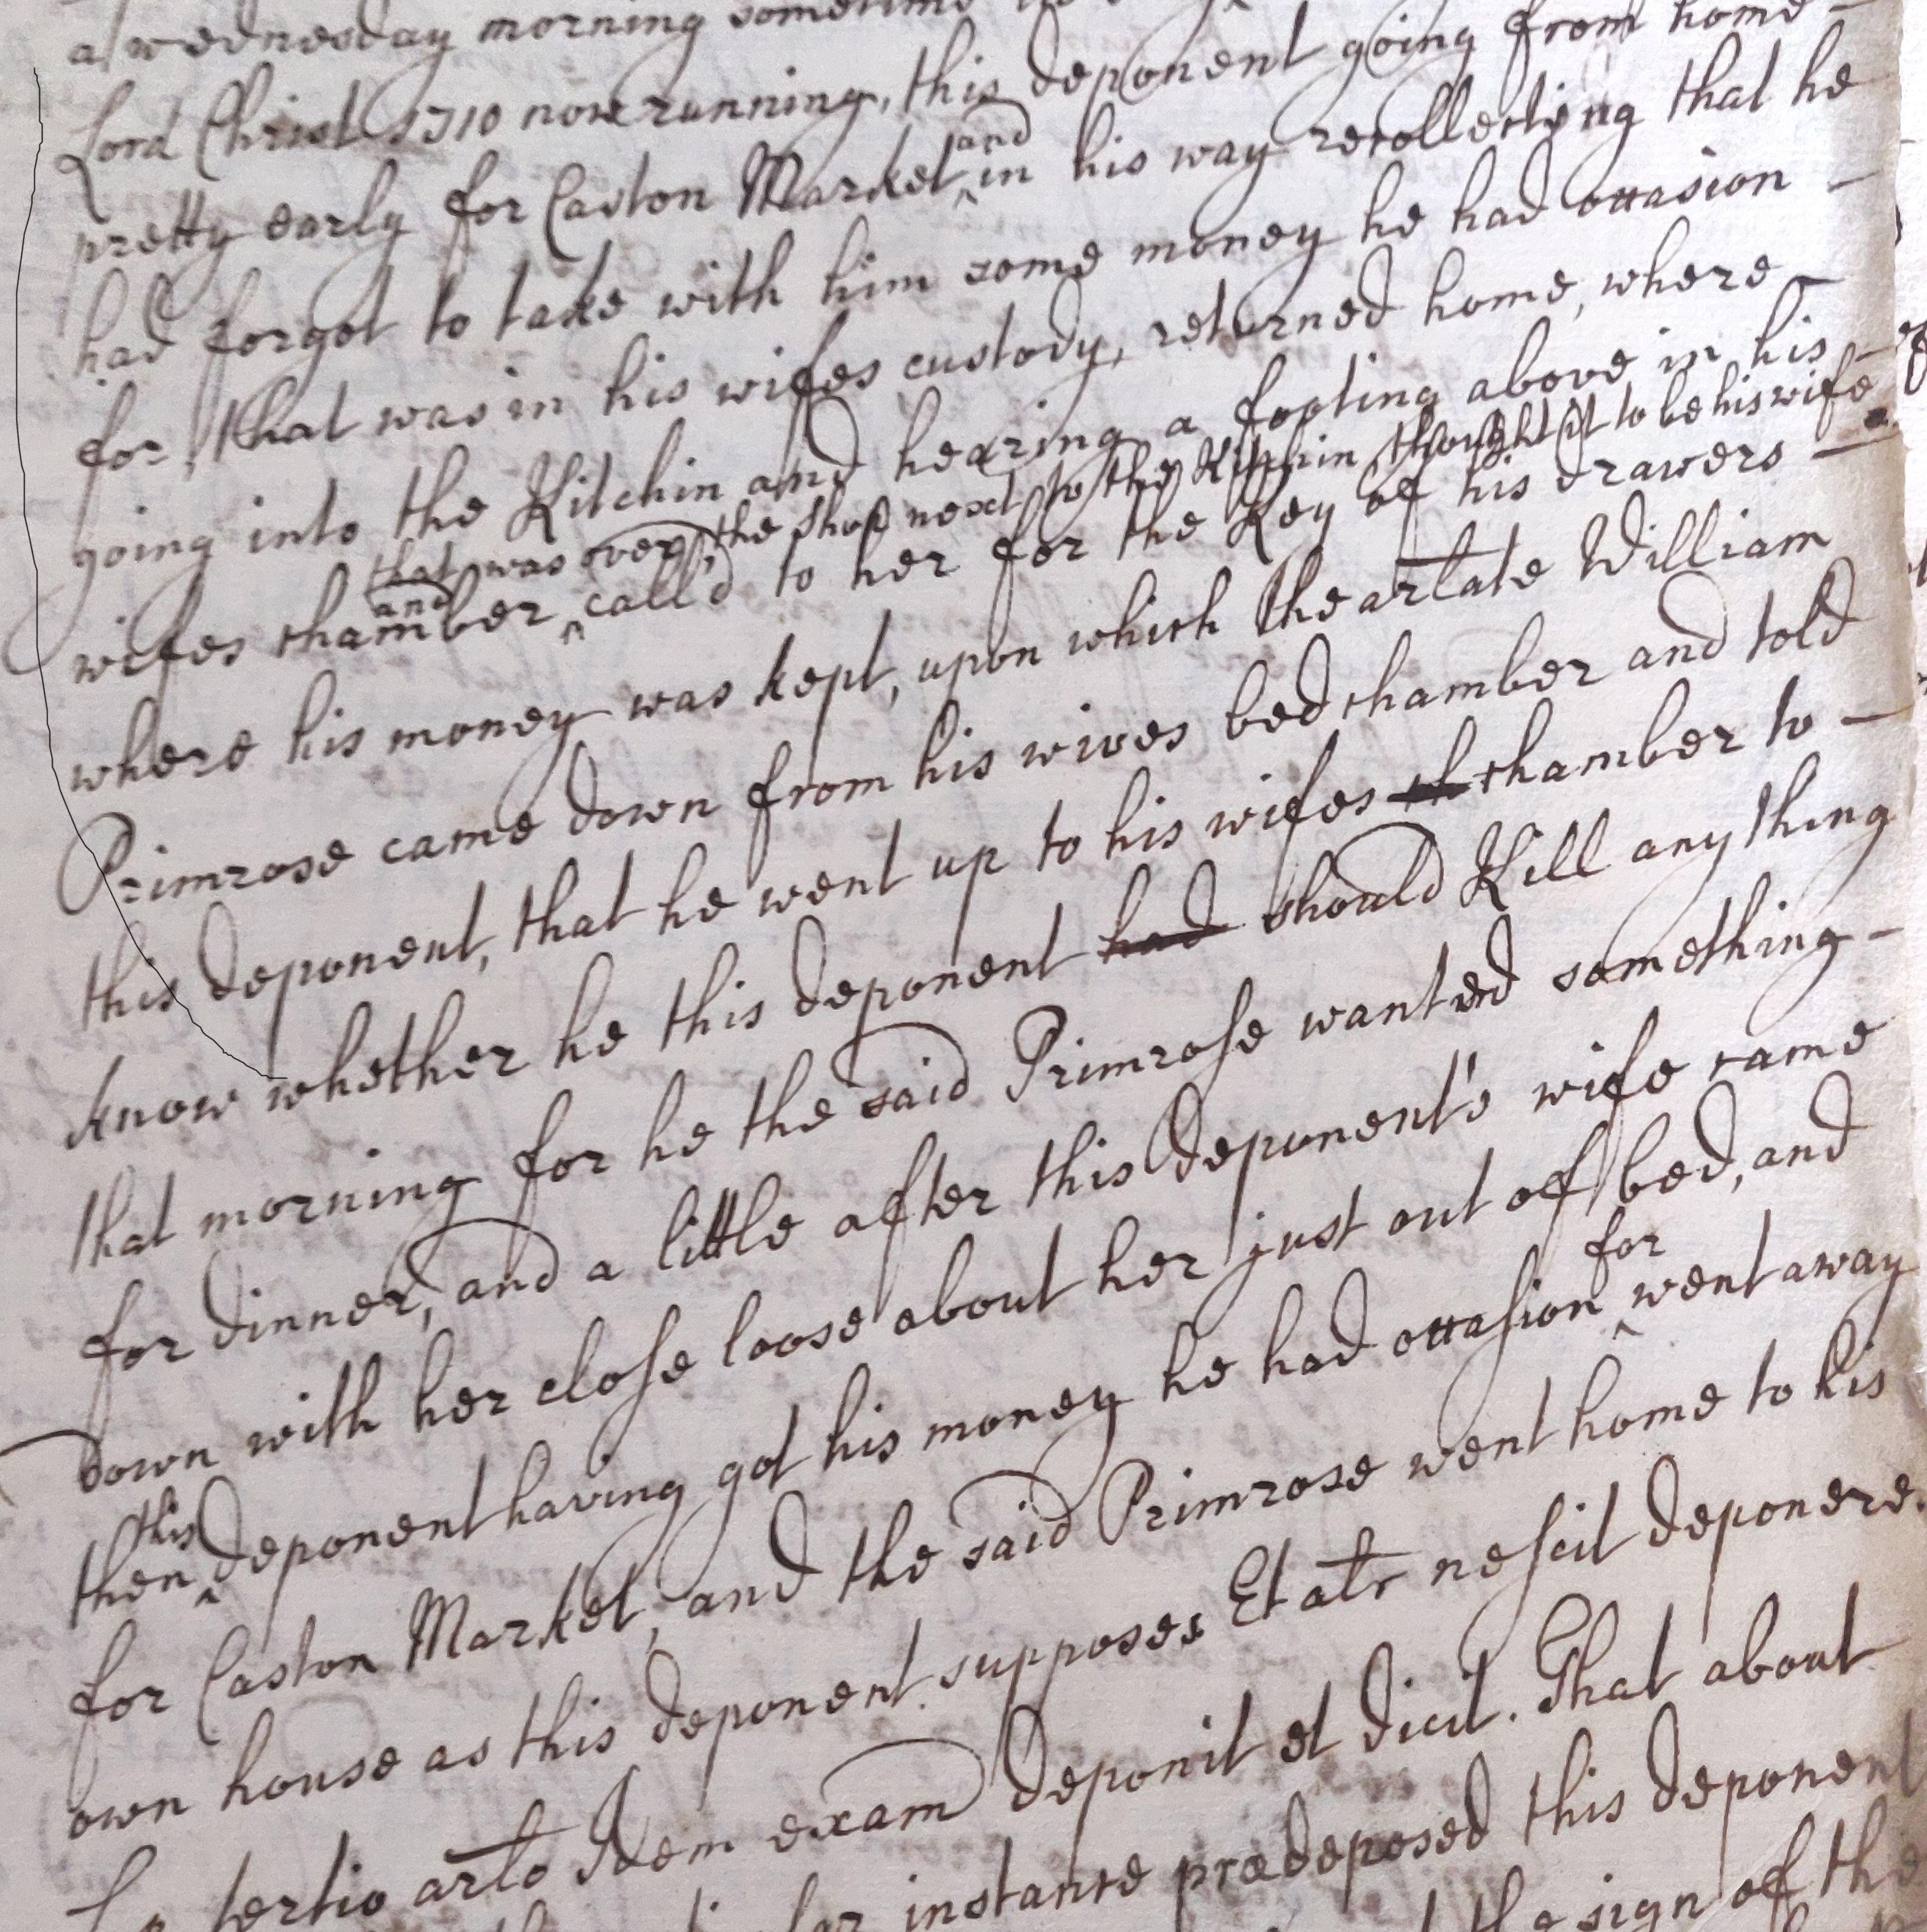 a wednesday morning sometime
Lord Christ 1710 now running, this deponent going from home
pretty early for Caston Market and in his way recollecting that he
had forgot to take with him some money he had occasion
for that was in his wifes custody, returned home, where
going into the Kitchin and hearing a footing above in his
that was over the shop next to the Kitchin thought it to be his wife
wifes chamber and call'd to her for the Key of his drawers
where his money was kept, upon which the artate William
Primrose came down from his wives bed chamber and told
this deponent, that he went up to his wifes ch chamber to
know whether he this deponent had should Kill any thing
that morning for he the said Primrose wanted something
for dinner, and a little after this deponent's wife came
down with her close loose about her just out of bed, and
then this deponent having got his money he had occasion for went away
for Caston Market, and the said Primrose went home to his
own house as this deponent supposes Et altr nescit deponere
tertio arto Idem exam deponit et dicit. That about
instance prædeposed this deponent
the sign of the